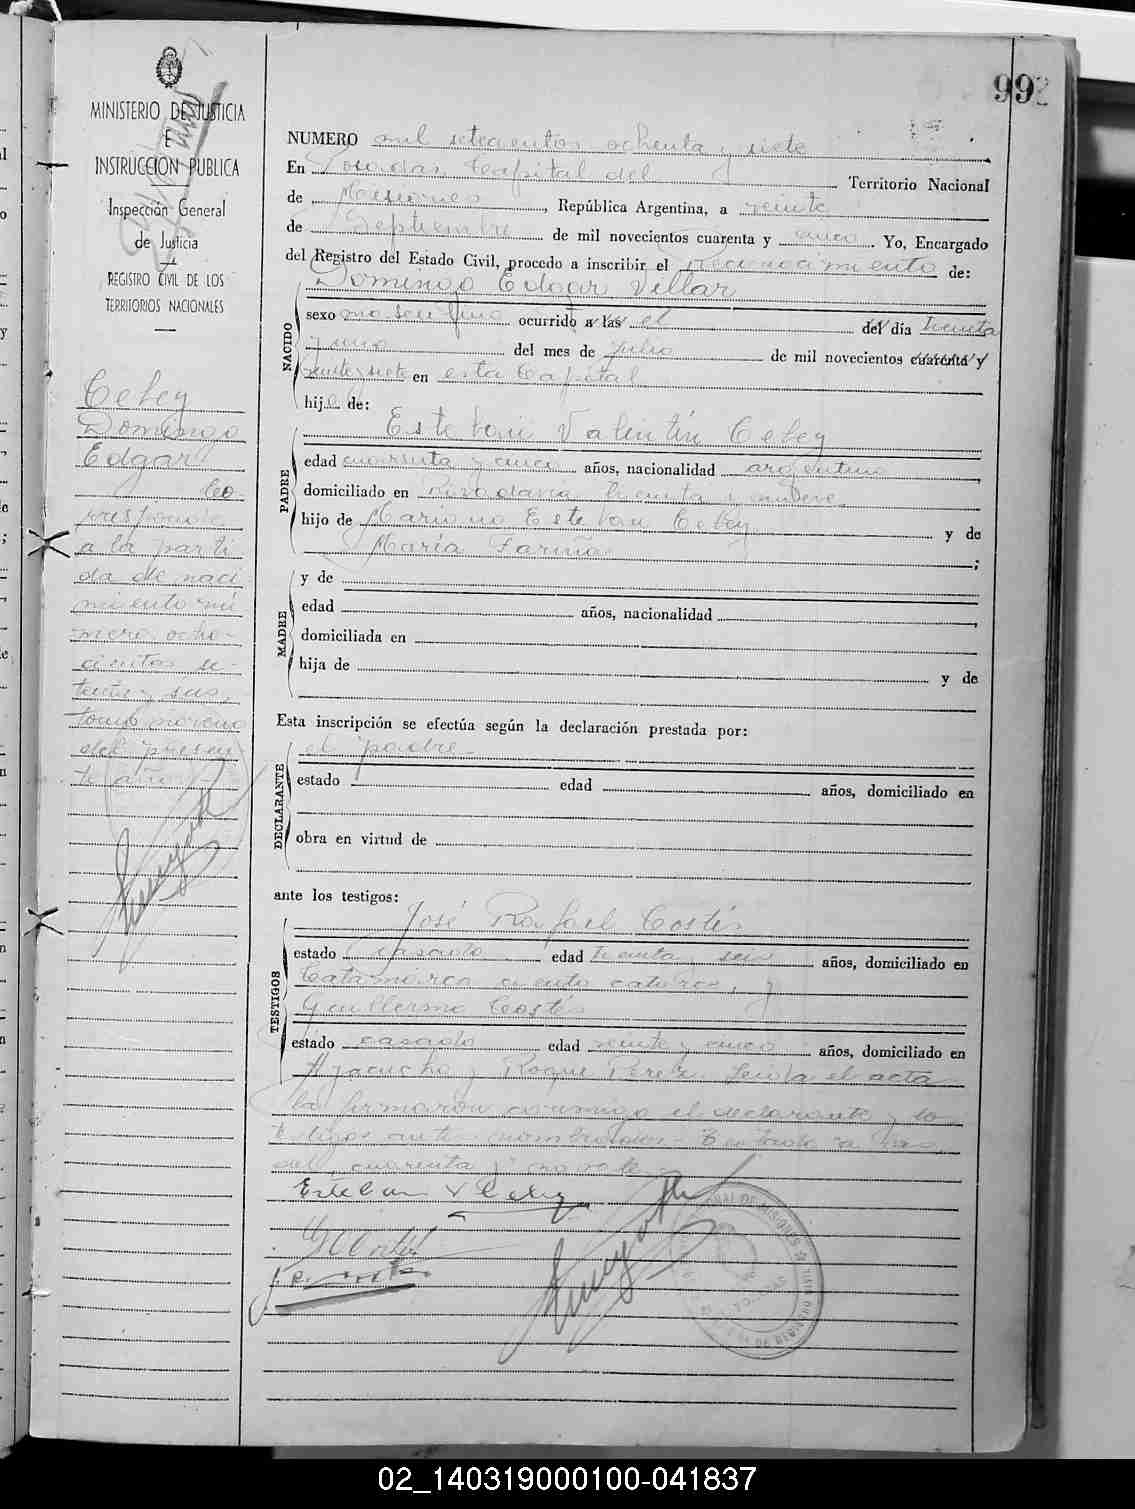 992
MINISTERIO DE JUSTICIA
E
INSTRUCCION PUBLICA
Inspección General
de Justicia
REGISTRO CIVIL DE LOS
TERRITORIOS NACIONALES
Cebey
Domingo
Edgar
Co
rresponde
a la parti
da de naci
miento nú
mero ocho-
cientos se-
tenta y seis,
tomo
del presen
te año.-
NUMERO mil setecientos ochenta y siete
En Posadas Capital del Territorio Nacional
de Misiones, República Argentina, a veinte
de Septiembre de mil novecientos cuarenta y cinco. Yo, Encargado
del Registro del Estado Civil, procedo a inscribir el Reconocimiento de:
Domingo Edgar Villar
NACIDO
sexo masculino ocurrido a las el del día treinta
y uno del mes de julio de mil novecientos cuarenta y
veinte y siete en esta Capital
hijo de:
Esteban Valentín Cebey
PADRE
edad cuarenta y cinco años, nacionalidad argentino
domiciliado en Rivadavia treinta y nueve,
hijo de Mariano Esteban Cebey y de
María Fariña ;
MADRE
y de
edad años, nacionalidad
domiciliada en
hija de y de
Esta inscripción se efectúa según la declaración prestada por:
el padre-
DECLARANTE
estado edad años, domiciliado en
obra en virtud de
ante los testigos:
José Rafael Costés
TESTIGOS
estado casado edad treinta y seis años, domiciliado en
Catamarca ciento catorce, y
Guillermo Costés
estado casado edad veinte y cinco años, domiciliado en
Ayacucho y Roque Perez. Leida el acta
la firmaron conmigo el declarante y los
testigos antes nombrados.- Testado: a las,
del, cuarenta y: no vale.-
Esteban V Cebey
02_140319000100-041837